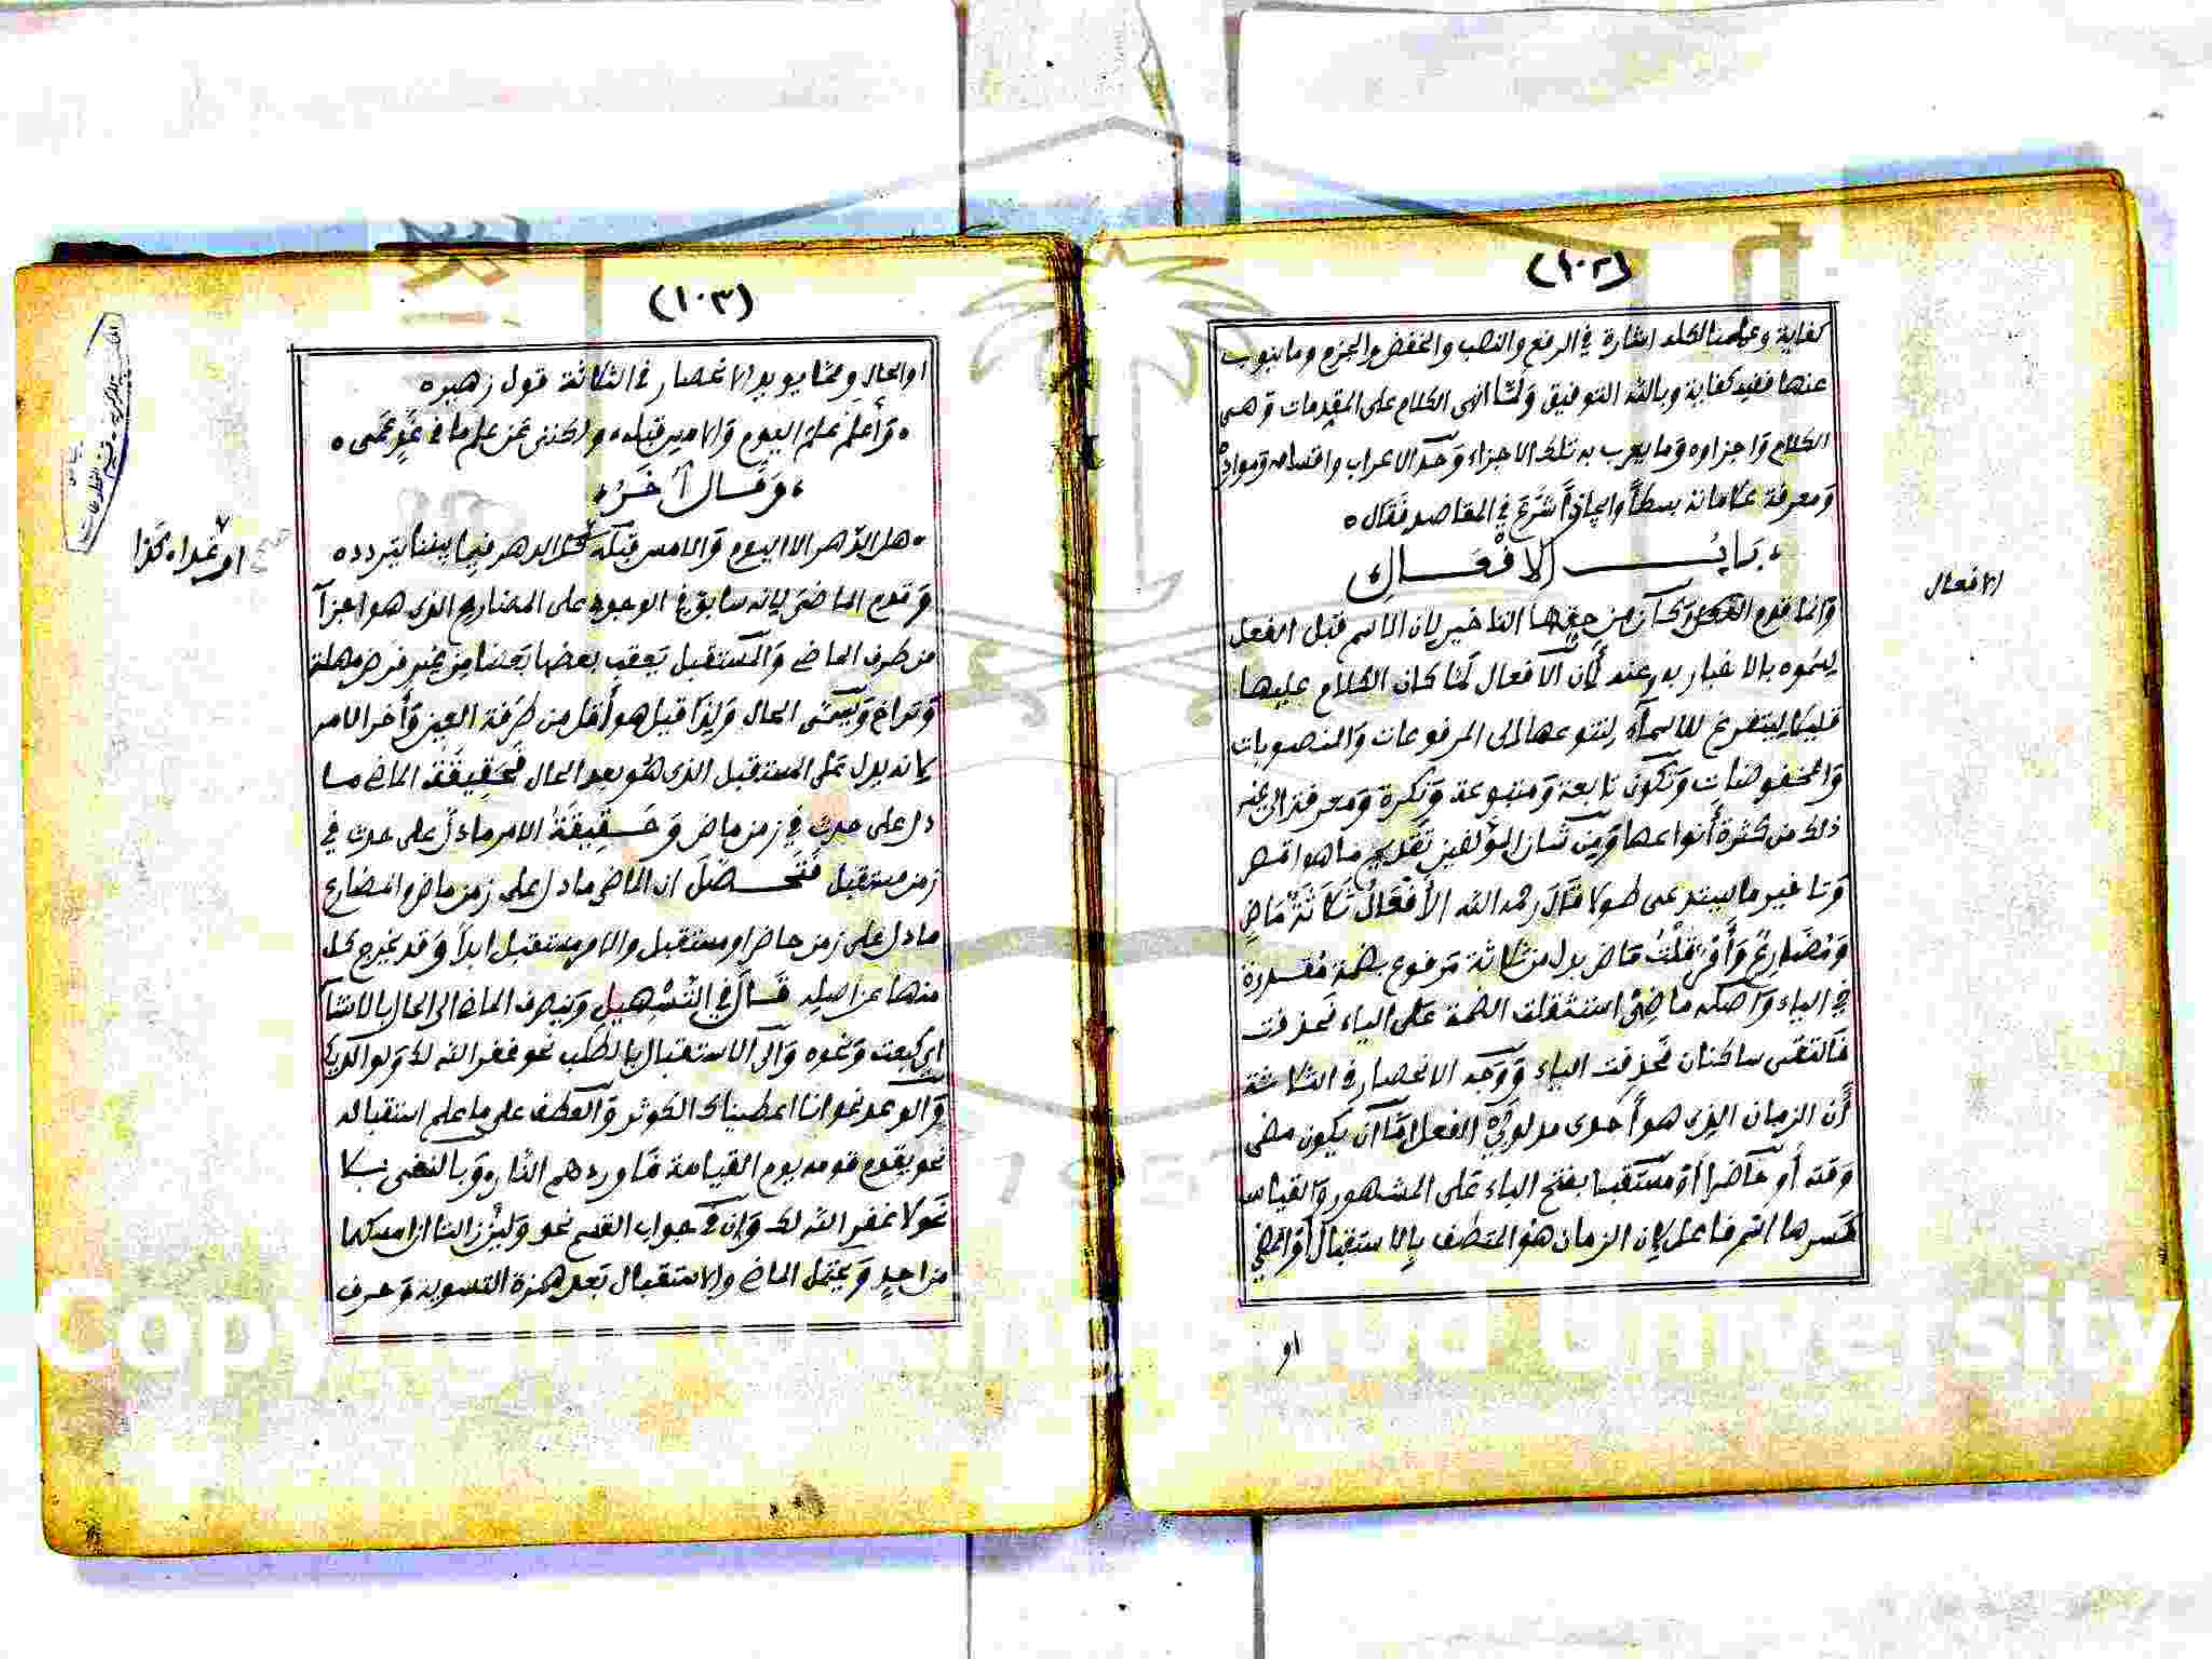 (١٠٢)
كفاية وعلمنا لكله اشارة في الرفع والنصب والخفض والجزم وما ينوب
عنها ففيه كفاية وبالله التوفيق ولما انهى الكلام على المقدمات وهي
الكلام واجزاوه وما يعرب به تلك الاجزاء وحد الاعراب واقسامه ومواده
ومعرفة علاماته بسطاً وايجازاً شرع في المقاصد فقال
باب الافعال
الافعال
وانما قدم وكان من حقها التاخير لان الاسم قبل الفعل
لسموه بالاخبار به وعنه لأن الافعال لما كان الكلام عليها
قليلا ليتفرغ للاسماء لتنوعها الى المرفوعات والمنصوبات
والمخفوضات وتكون تابعة ومتبوعة ونكرة ومعرفة الى غير
ذلك من كثرة أنواعها ومن شان المؤلفين تقديم ما هو اقصر
وتاخير ما يستدعى طولا قال رحمه الله الأفعال ثلاثة ماض
ومضارع وأمر قلت ماض بدل من ثلاثة مرفوع بضمة مقدرة
في الياء واصله ماضي استثقلت الضمة على الياء فحذفت
فالتقى ساكنان فحذفت الياء ووجه الانحصار في الثلاثة
أن الزمان الذى هو أحدى مدلولي الفعل اما أن يكون مضى
وقته أو حاضرا أو مستقبلا بفتح الباء على المشهور والقياس
كسرها اسم فاعل لان الزمان هو المتصف بالاستقبال أو المضي
او
(١٠٣)
او الحال ومما يويد الانحصار في الثلاثة قول زهير
وأعلم علم اليوم والامس قبله ولكنني عن علم ما في غد عمى
وقال آخر
هل الدهر الا اليوم والامس قبله كذا الدهر فيما بيننا يتردد
او غدا
وقدم الماضي لانه سابق في الوجود على المضارع الذى هو اجزآ
من طرف الماضي والمستقبل يعقب بعضها بعضا من غير فرض مهلة
وتراخ ويسمى الحال ولذا قيل هو أقل من طرفة العين وأخر الامر
لانه يدل على المستقبل الذى هو بعد الحال فحقيقة الماضي ما
دل على حدث في زمن ماض وحقيقة الامر ما دل على حدث في
زمن مستقبل فتحصل ان الماضي ما دل على زمن ماض والمضارع
ما دل على زمن حاضر او مستقبل والامر مستقبل ابداً وقد يخرج كل
منها عن اصله قال في التسهيل وينصرف الماضي الى الحال بالانشآ
اي كبعت ونحوه والى الاستقبال بالطلب نحو غفر الله لك ولوالديك
والوعد نحو انا اعطيناك الكوثر والعطف على ما علم استقباله
نحو يقدم قومه يوم القيامة فاوردهم النار وبالنفى بلا
نحو لا غفر الله لك وان في جواب القسم نحو ولئن زالتا ان امسكهما
من احد ويحتمل الماضي والاستقبال بعد همزة التسوية وحرف